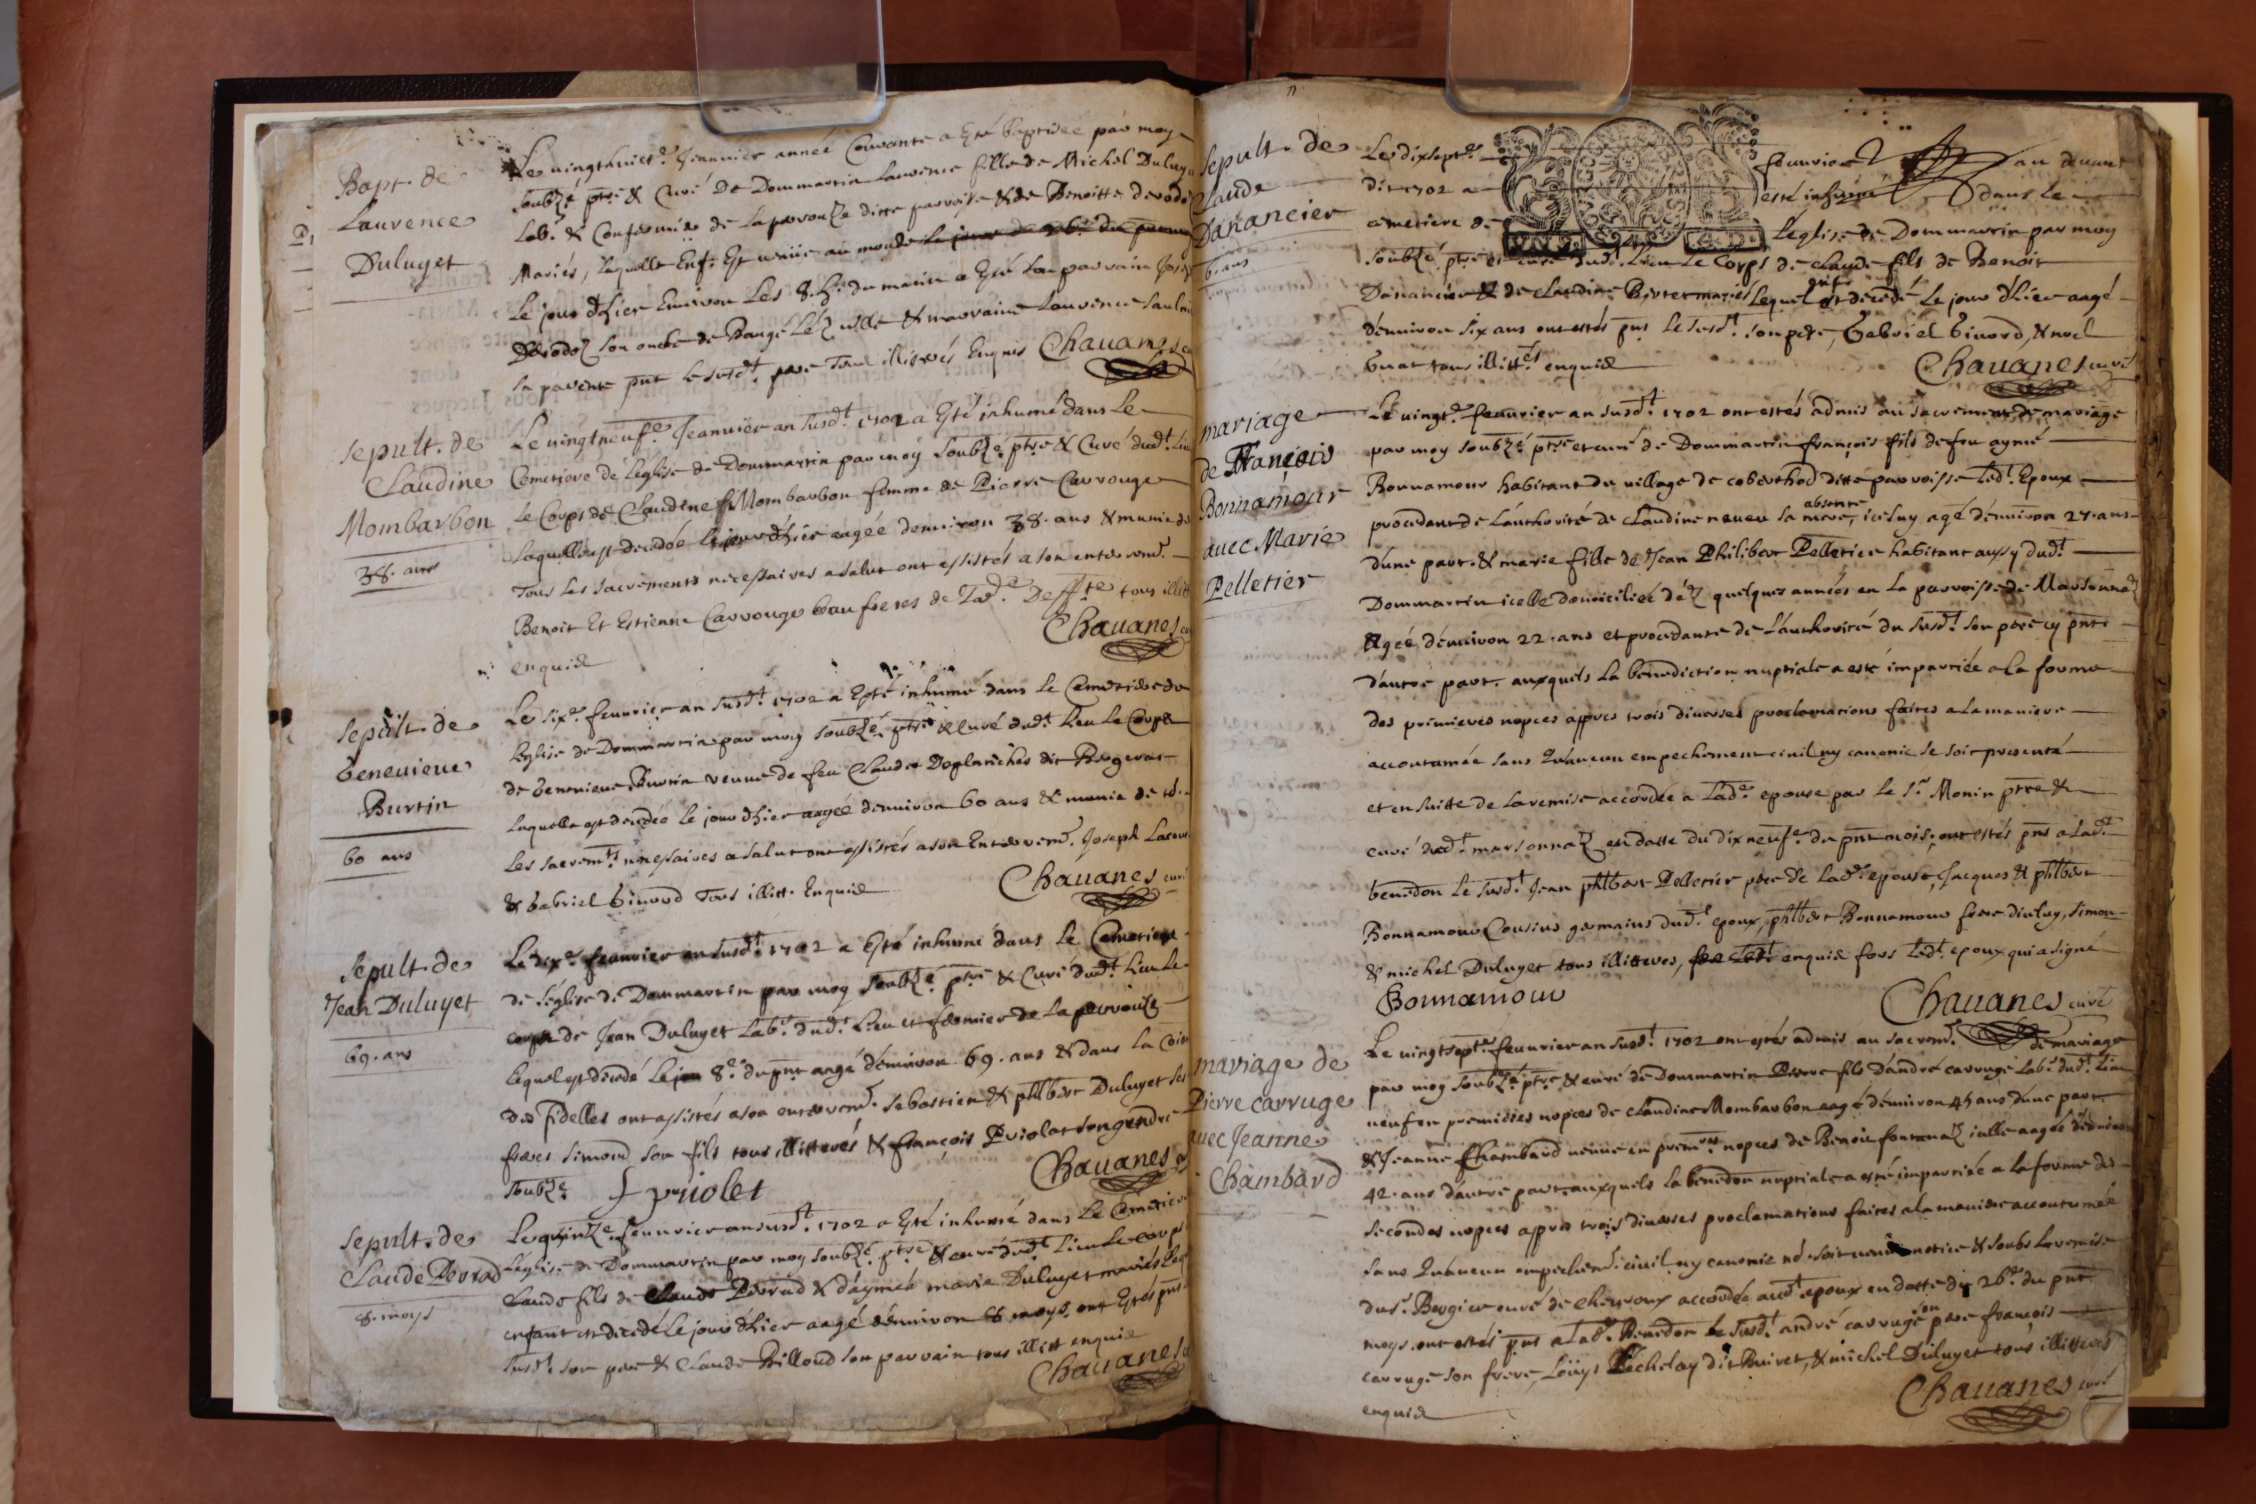 Bapt. de
Laurence
Duluyet
Le vingthuict.e Jeanvier année Courante a Esté baptisée par moy
soubzé ptre & Curé De Dommartin Laurence fille de Michel Duluy
Lab.r & de la ditte parroisse & de Benoitte
Mariés, laquelle Enf. Est venüe au monde
Le jour d'hier Environ Les 8. h. du matin a Esté son parrain Jos
son oncle de Baugé & marraine Laurence
sa parente pnt le susd.t pere Tous illitterés Enquis Chauanes
sepult. de
Claudine
Mombarbon
38. ans
Le vingtneuf.e Jeanvier an susd.t 1702 a Esté inhumé dans Le
Cemetiere de Léglise de Dommartin par moy soubzé. ptre & Curé dud.t Lieu
Le Corps de Claudine Mombarbon femme de Pierre Carrouge
Laquelle est decedée le jour d'hier aagée denviron 38. ans & munie de
Tous Les sacrements necessaires a salut ont assistés a son enterrem.t
Benoit Et Estienne Carrouge beaufreres de Lad.e Deffte tous illitt
enquis
Chauanes
sepult. de
Genevieve
Burtin
60 ans
Le six.e feuvrier an susd.t 1702 a Esté inhumé dans le Cemetiere de
Léglise de Dommartin par moy soubzé. ptre & Curé dud.t Lieu Le Corps
de Genevieve Burtin veuve de feu Claude Desplanches dit Rogerat
Laquelle est decedée le jour d'hier aagée denviron 60 ans & munie de
Les sacrem.ts necessaires a salut ont assistés a son Enterrem.t Joseph
& Gabriel Givord Tous illitt. Enquis
Chauanes curé
sepult. de
Jean Duluyet
69. ans
Le dix.e feuvrier an susd.t 1702 a Esté inhumé dans le Cemetiere
de Léglise de Dommartin par moy soubzé. ptre & Curé dud.t Lieu Le
corps de Jean Duluyet Lab.r dud.t Lieu et fermier de La
Lequel est decedé le 8.e du pnt aagé denviron 69. ans & dans la
des fidelles ont assistés a son enterrem.t Sebastien & phlbert Duluyet ses
freres Simond son fils tous illitterés & françois Priolat son gendre
soubzé. priolet
Chauanes
sepult. de
Claude Perrad
8. moys
Le quinze.e feuvrier an susd.t 1702 a Esté inhumé dans Le Cemetiere
Léglise de Dommartin par moy soubzé ptre & curé dud.t Lieu Le corps
Claude fils de Claude Perrad & d'aymée marie Duluyet mariés
enfant est decedé le jour d'hier aagé denviron 8 moys ont Estés pnts
susd.t son pere & Claude Billoud son parrain tous illitt enquis
Chauanes
sepult. de
Claude
Danancier
6. ans
Le dixsept.e feuvrier an avant
dit 1702 a esté inhumé dans le
cimetiere de Léglise de Dommartin par moy
soubzé. ptre et curé dud.t Lieu Le Corps de Claude fils de Benoit
Danancier & de Claudine mariés Lequel est decedé le jour d'hier aagé
denviron six ans ont estés pnts le susd.t son pere, Gabriel Givord, & noel
tous illitt.es enquis
Chauanes curé
mariage
de François
Bonnamour
avec Marie
Pelletier
Le vingt.e feuvrier an susd.t 1702 ont estés admis au sacrement de mariage
par moy soubzé ptre et curé de Dommartin françois fils de feu aymé
Bonnamour habitant du village de coberthod ditte parroisse led.t Epoux
procedant de L'authorité de Claudine neveu sa mere, absente icelluy agé denviron 27. ans
d'une part. & marie fille de Jean Philibert Pelletier habitant aussy dud.t
Dommartin icelle domiciliée déz quelques années en La parroisse de Marsonnaz
Agée denviron 22. ans et procedante de L'authorité du susd.t son pere cy pnt
d'autre part. auxquels la benediction nuptiale a esté impartiée a la forme
des premieres nopces appres trois diverses proclamations faites a la maniere
accoutumée sans Qu'aucun empechement civil ny canonic se soit presenté
et en suitte de la remise accordée a Lad.e epouse par le S.r Monin ptre &
curé dud.t marsonnaz en datte du dix neuf.e du pnt mois, ont estés pnts a lad.te
benedon le susd.t Jean phlbert Pelletier pere de lad.e epouse, Jacques & phlbert
Bonnamour Cousins germains dud.t epoux, phlbert Bonnamour frere diceluy, simon
& michel Duluyet tous illitteres, enquis fors led.t epoux qui a signé
Bonnamour
Chauanes curé
mariage de
Pierre carruge
avec Jeanne
Chambard
Le vingtsept.e feuvrier an susd.t 1702 ont estés admis au sacrem.t de mariage
par moy soubzé ptre & curé de Dommartin Pierre fils D'andré carruge Lab.r dud.t Lieu
veuf en premieres nopces de Claudine Mombarbon aagé denviron 45 ans d'une part
& Jeanne Chambard veuve en prem.res nopces de Benoit fontanaz icelle aagée denviron
42. ans d'autre part auxquels la benedon nuptiale a esté impartiée a la forme des
secondes nopces appres trois diverses proclamations faites a la maniere accoutumée
sans Qu'aucun empechem.t civil ny canonic soit venu notice & soubs la remise
du S.r Bergier curé de Chevroux accordée aud.t epoux en datte du 26.e du pnt
moys. ont estés pnts a lad.e Benedon le susd.t andré carruge son pere françois
carruge son frere, Loüys Pechelay dit Buivet, & michel Duluyet tous illitteres
enquis
Chauanes curé